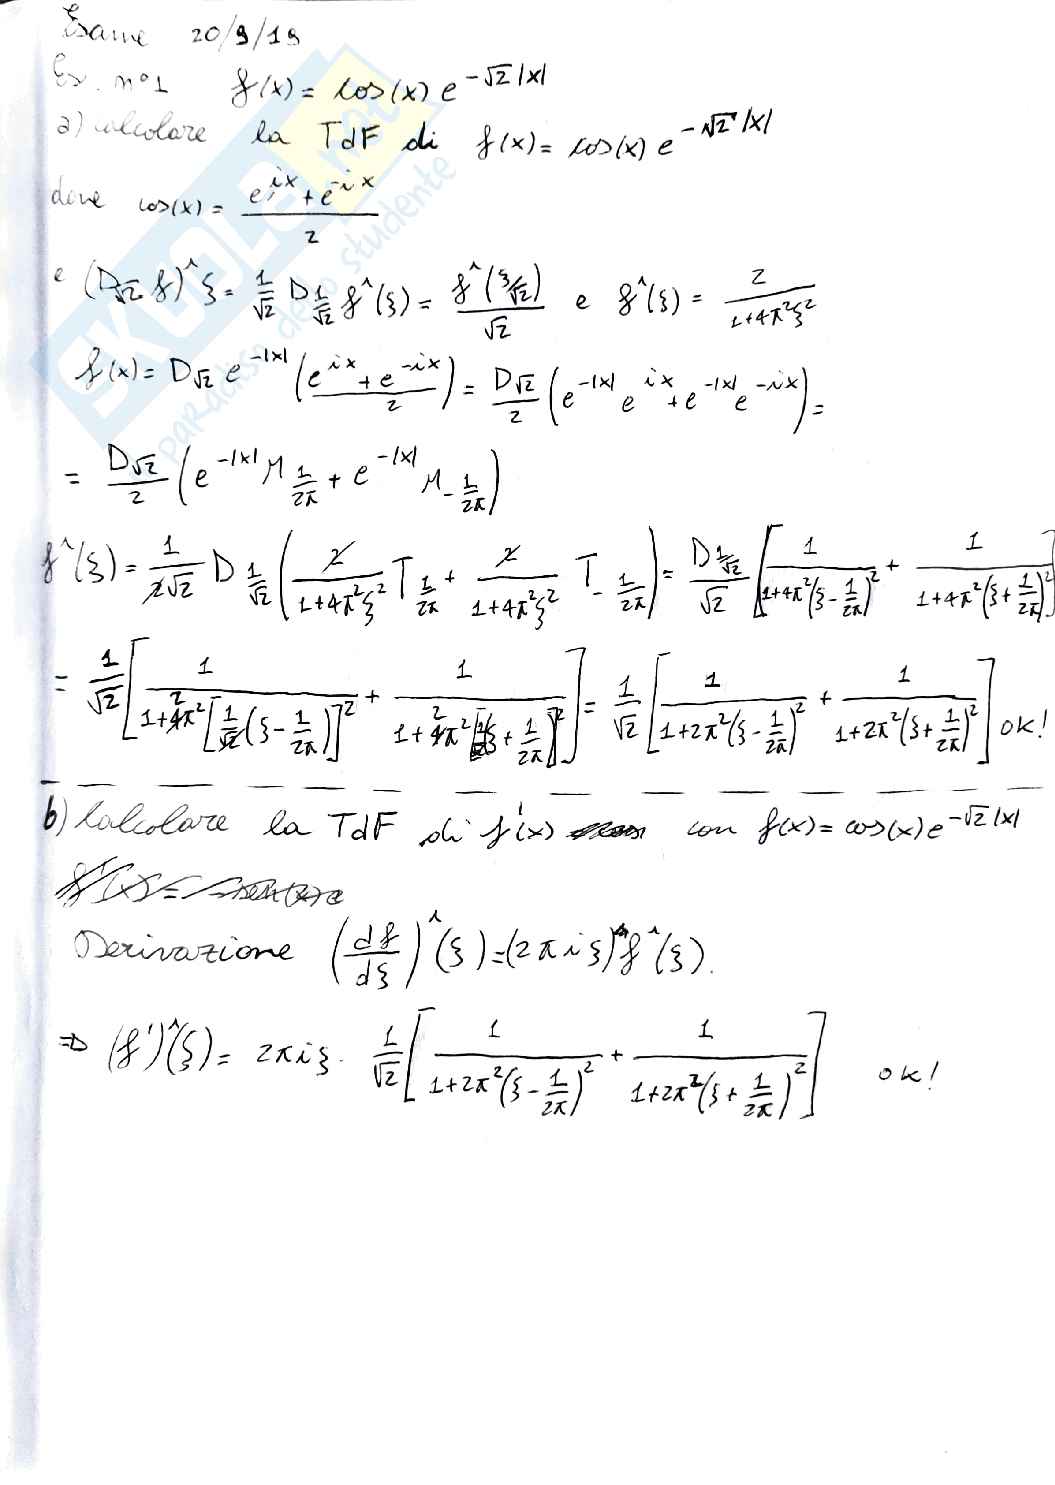 Esame 20/9/19
Es. n°1 f(x) = cos(x) e^{-√2|x|}
a) Calcolare la TdF di f(x) = cos(x) e^{-√2|x|}
dove cos(x) = (e^{ix} + e^{-ix})/2
e (D_{√2} f)^ ξ = 1/√2 D_{1/√2} f^(ξ) = f^(ξ/√2)/√2 e f^(ξ) = 2/(1+4π²ξ²)
f(x) = D_{√2} e^{-|x|} ((e^{ix} + e^{-ix})/2) = D_{√2}/2 (e^{-|x|} e^{ix} + e^{-|x|} e^{-ix}) =
= D_{√2}/2 (e^{-|x|} M_{1/2π} + e^{-|x|} M_{-1/2π})
f^(ξ) = 1/(2√2) D_{1/√2} (2/(1+4π²ξ²) T_{1/2π} + 2/(1+4π²ξ²) T_{-1/2π}) = D_{1/√2}/√2 [1/(1+4π²(ξ-1/2π)²) + 1/(1+4π²(ξ+1/2π)²)]
= 1/√2 [1/(1+4π²[1/√2(ξ-1/2π)]²) + 1/(1+4π²[1/√2(ξ+1/2π)]²)] = 1/√2 [1/(1+2π²(ξ-1/2π)²) + 1/(1+2π²(ξ+1/2π)²)] ok!
b) Calcolare la TdF di f'(x) con f(x) = cos(x) e^{-√2|x|}
Derivazione (df/dξ)^(ξ) = (2πiξ) f^(ξ).
⇒ (f')^(ξ) = 2πiξ · 1/√2 [1/(1+2π²(ξ-1/2π)²) + 1/(1+2π²(ξ+1/2π)²)] ok!
SKUOLA.net
paradiso dello studente